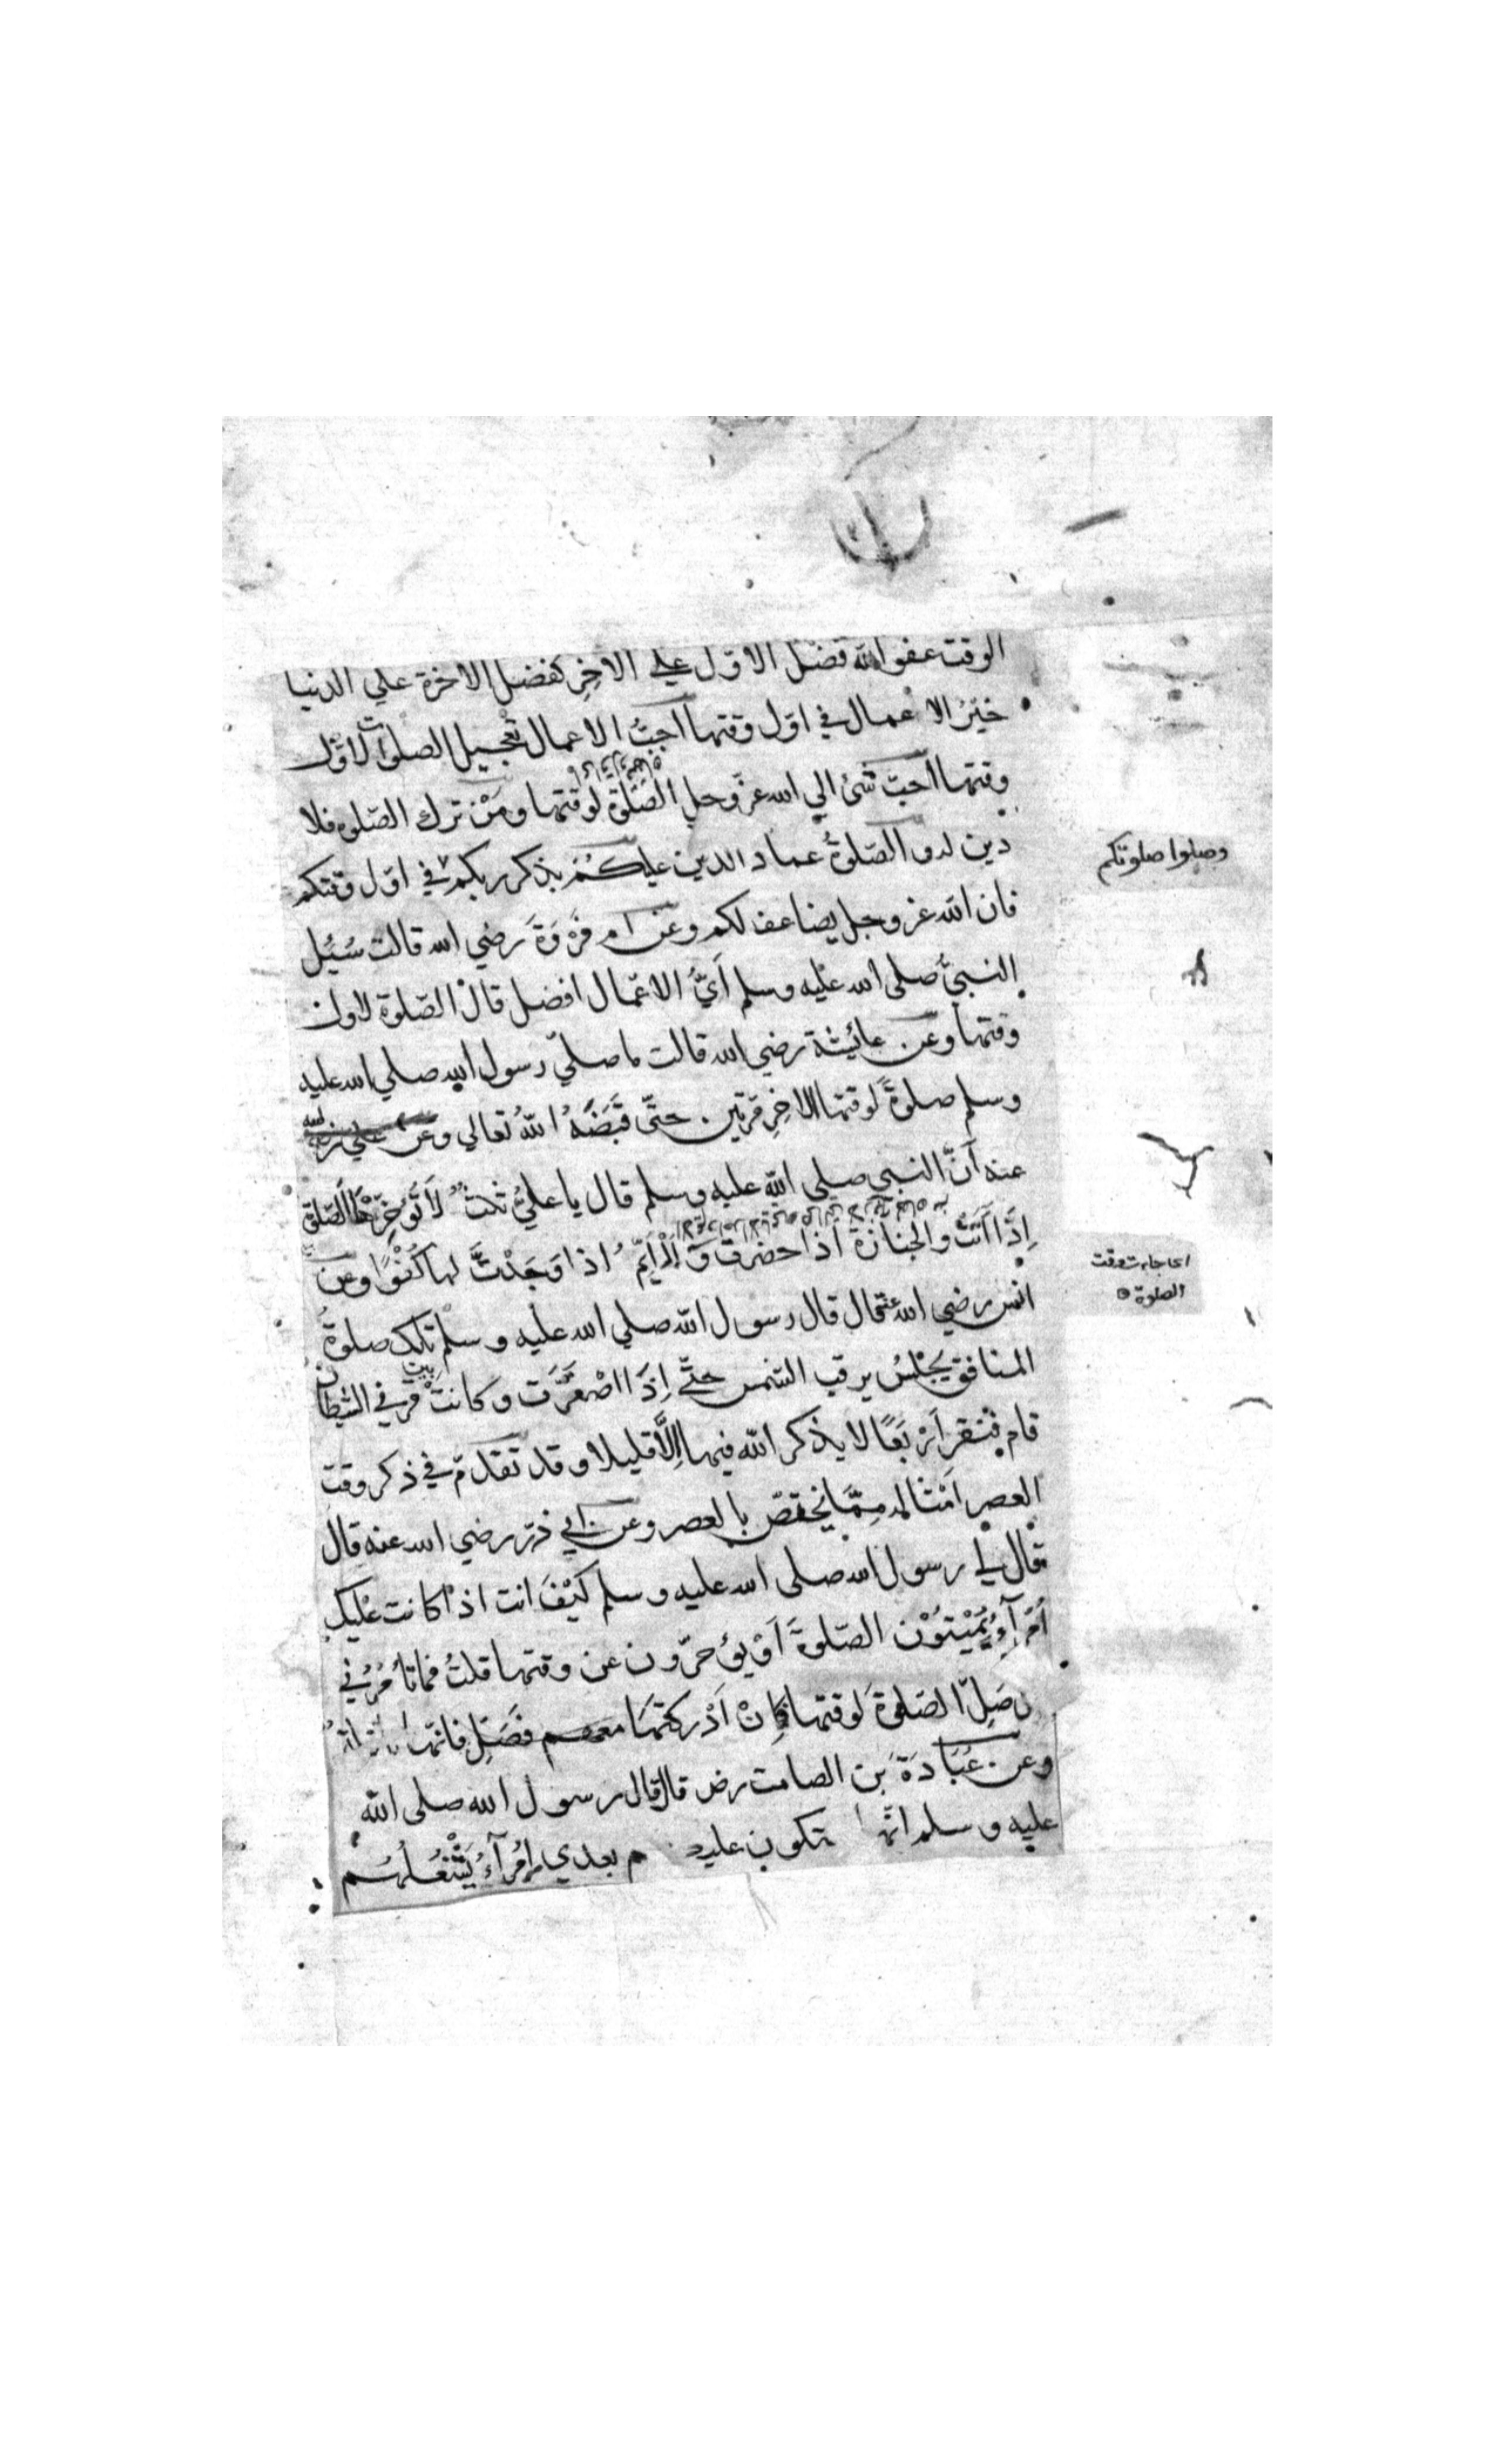 الوقت عفو الله فضل الاوّل علي الاخِرِ كفضل الاخرة علي الدنيا
خَيْرُ الاعمال في اوّل وقتها احَبُّ الاعمال تعجيل الصلوات لاوّل
وقتها احبّ شئ الي الله عزّ وجل الصّلوة لوقتها ومَنْ ترك الصّلوة فلا
دين له و الصّلوةُ عماد الدين عليكُمْ بذكر ربكم في اوّل وقتكم
وصلوا صلوتكم
فان الله عز وجل يضاعف لكم وعن ام فَرْوَةَ رضي الله قالت سُئِل
النبيُّ صلى الله عليه وسلم اَيُّ الاعمال افضل قال الصّلوة لاول
وقتها وعن عائيشة رضي الله قالت ما صليّ رسول الله صلي الله عليه
وسلم صلوةً لوقتها الاخِرِ مرتين حتّى قَبَضَهُ اللهُ تعالي وعن علي رضي الله
عنه اَنَّ النبي صلي الله عليه وسلم قال يا عليُّ ثلثٌ لاَ تُؤَخِّرْها الصّلوة
اِذَا اَتَتْ والجنازة اذا حضرت وَالْاَيِّمُ اذا وَجَدْتَّ لها كُفْوًا وعن
اي جاءت وقت
الصلوة
انس رضي الله عنه قال قال رسول الله صلي الله عليه وسلم تلك صلوةُ
المنافق يَجْلِسُ يرقب الشمس حتّي اِذَا اصْفَرَّت وكانَتْ بين قرني الشيطان
قام فنقر اَرْبَعًا لا يذكر الله فيها اِلاَّ قليلا وقد تقدّم في ذكر وقت
العصر اَمثاله مِمَّا يختصّ بالعصر وعن ابي ذرّ رضي الله عنه قال
قال لي رسول الله صلى الله عليه وسلم كَيْفَ انت اذا كانت عليك
اُمَرَآءُ يُمِيْتُوْن الصّلوةَ اَوْ يؤخرّون عن وقتها قلتُ فما تأمُرُني
صَلِّ الصّلوةَ لوقتها فَاِنْ اَدْركتَهَا معهم فصَلِّ فانّها
وعن عُبَادَةَ بن الصامت رض قال قال رسول الله صلى الله
عليه وسلم انّها تكون بعدي اُمَرآءُ يَشْغَلُهُم